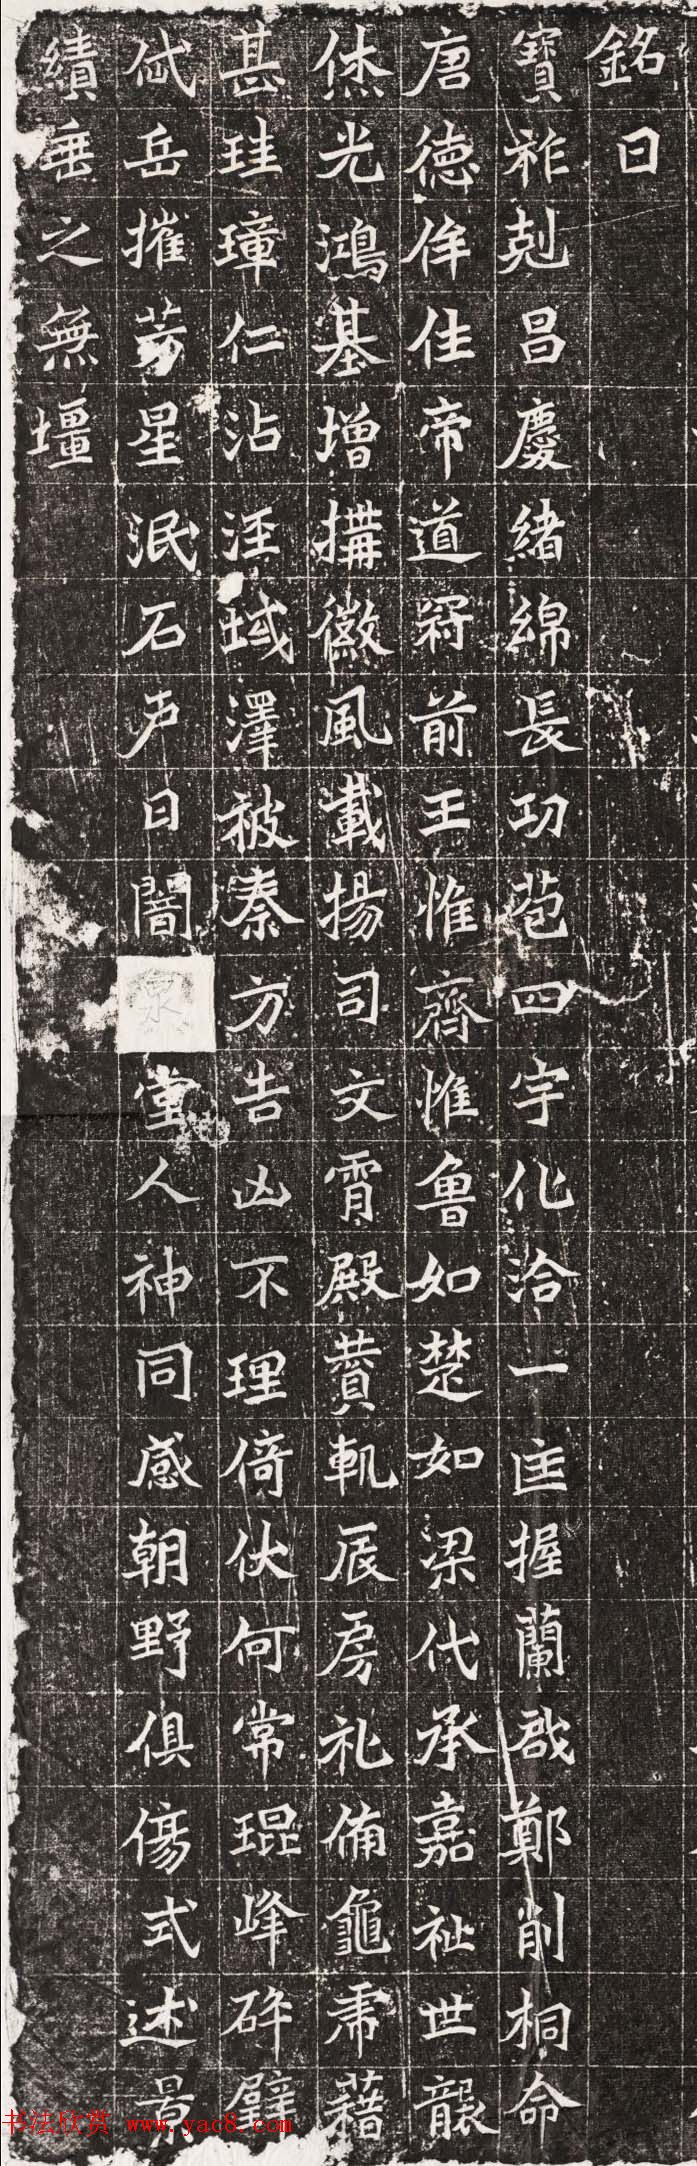 銘曰
寶祚剋昌慶緒綿長功苞四宇化洽一匡握蘭啟鄭削桐命
唐德侔往帝道冠前王惟齊惟魯如楚如梁代承嘉祉世襲
休光鴻基增搆徽風載揚司文霄殿贊軏辰房礼備龜常藉
甚珪璋仁沾汪域澤被秦方告凶不理倚伏何常琨峰碎璧
岱岳摧芳星泯石戶日闇泉堂人神同感朝野俱傷式述景
績垂之無壃
书法欣赏 www.yac8.com